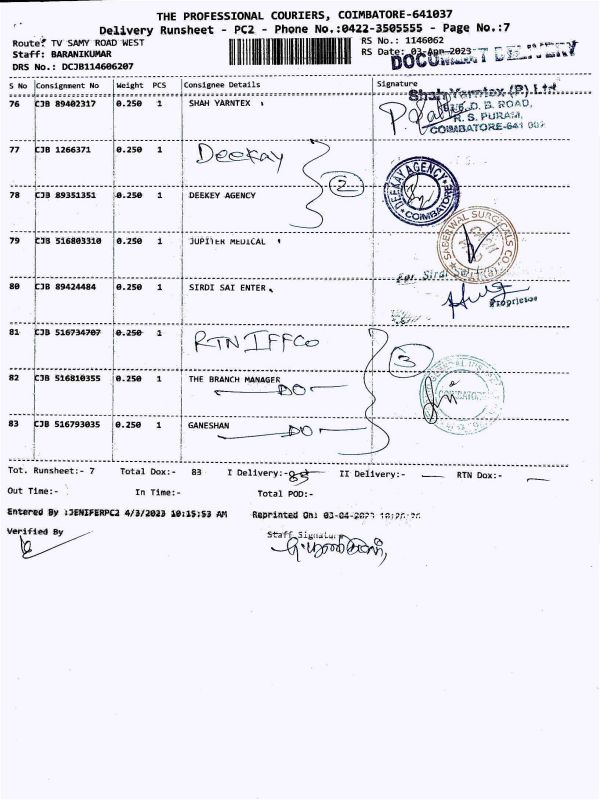 THE PROFESSIONAL COURIERS, COIMBATORE-641037
Delivery Runsheet - PC2 - Phone No.:0422-3505555 - Page No.:7
Route: TV SAMY ROAD WEST
RS No.: 1146062
Staff: BARANIKUMAR
RS Date: 03-Apr-2023
DOCUMENT DELIVERY
DRS No.: DCJB114606207
S No Consignment No Weight PCS Consignee Details Signature
76 CJB 89402317 0.250 1 SHAH YARNTEX
Shah Yarntex (P) Ltd
D. B. ROAD,
R. S. PURAM,
COIMBATORE-641 002
77 CJB 1266371 0.250 1 Deekay
2
78 CJB 89351351 0.250 1 DEEKEY AGENCY
DEEKAY AGENCY COIMBATORE
79 CJB 516803310 0.250 1 JUPITER MEDICAL
SABERWAL SURGICALS CO.
For Sirdi Sai
80 CJB 89424484 0.250 1 SIRDI SAI ENTER
Proprietor
81 CJB 516734707 0.250 1 RTN IFFCO
3
82 CJB 516810355 0.250 1 THE BRANCH MANAGER
DO
COIMBATORE
83 CJB 516793035 0.250 1 GANESHAN
DO
Tot. Runsheet:- 7 Total Dox:- 83 I Delivery:- 83 II Delivery:- RTN Dox:-
Out Time:- In Time:- Total POD:-
Entered By :JENIFERPC2 4/3/2023 10:15:53 AM Reprinted On: 03-04-2023
Verified By
Staff Signature